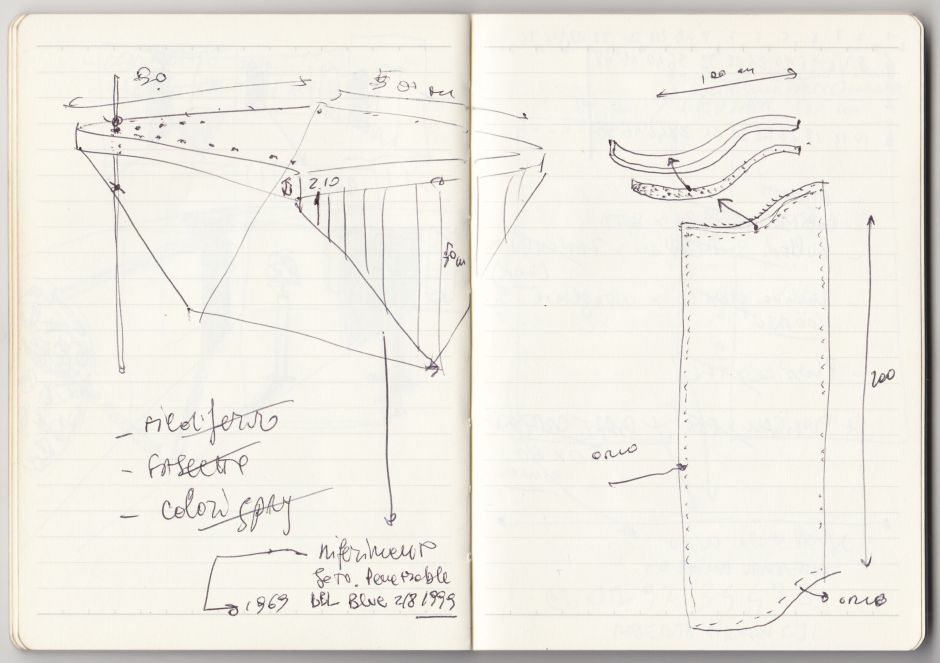 90
50 cm
2.10
50 cm
- fil di ferro
- fascette
- colori spray
riferimento
foto. Penetrable
BBL Blue 2/8 1999
1969
100 cm
200
orlo
orlo